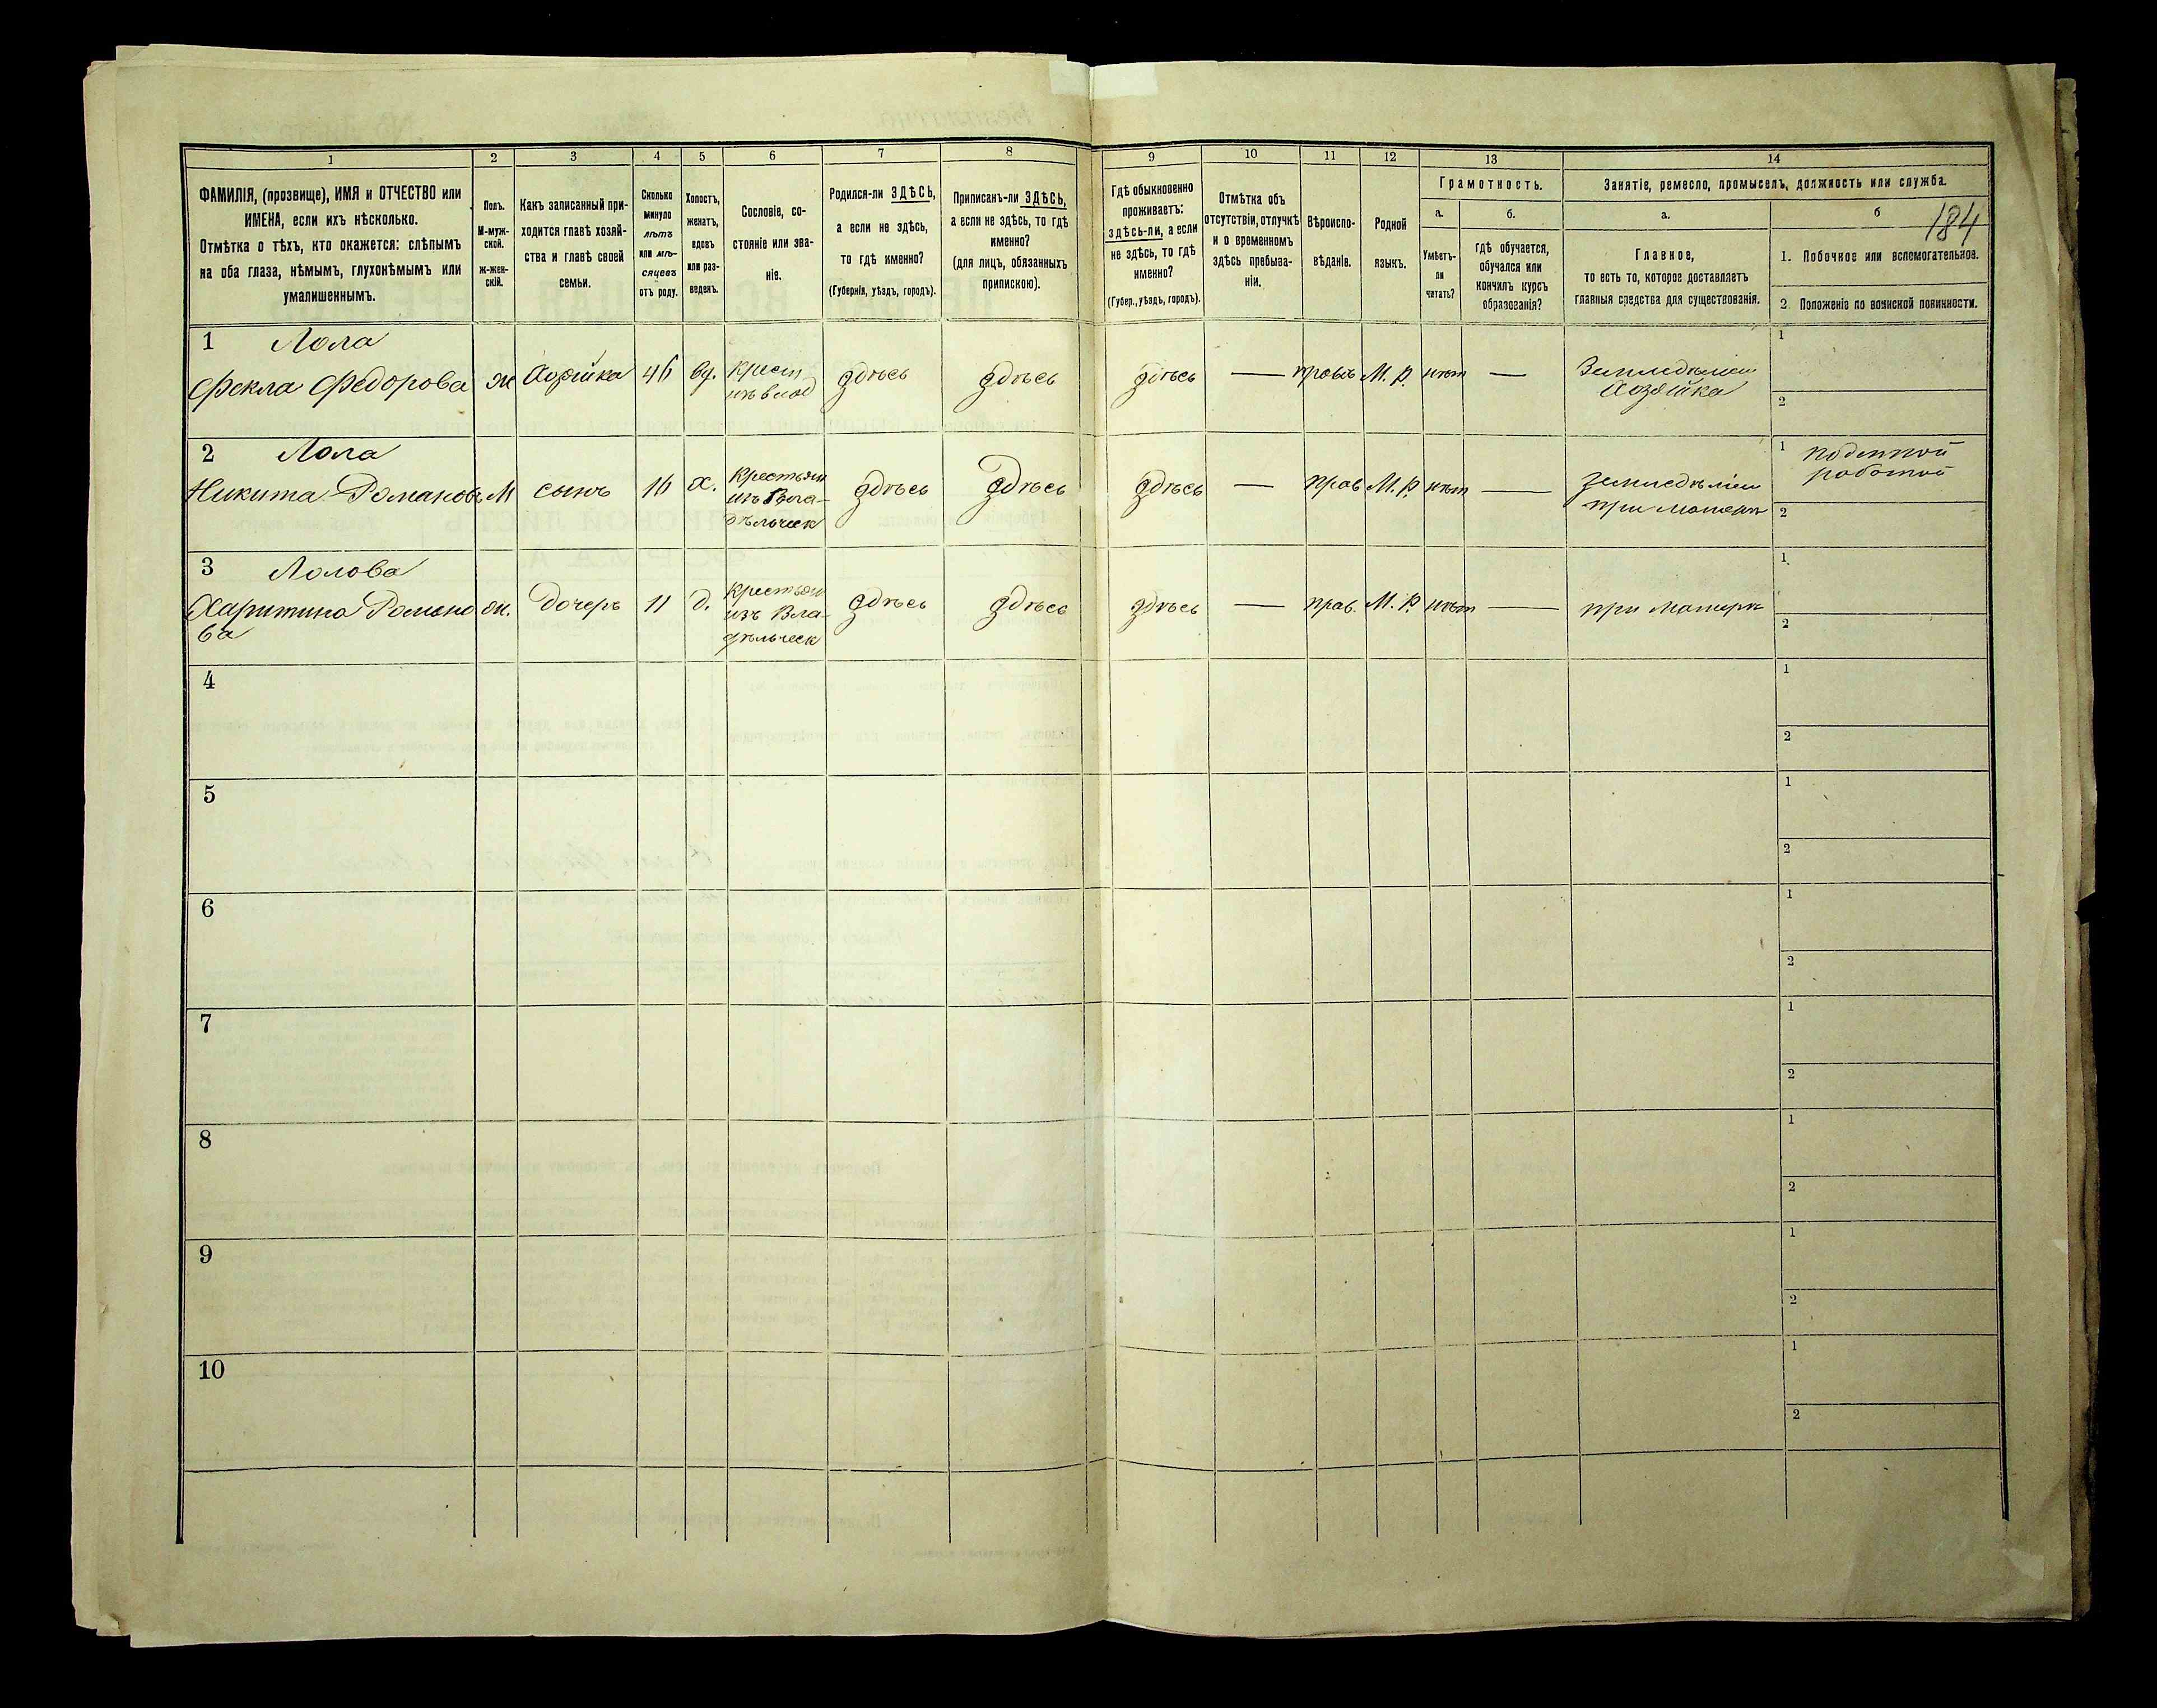 1 2 3 4 5 6 7 8 9 10 11 12 13 14
ФАМИЛІЯ, (прозвище), ИМЯ и ОТЧЕСТВО или
ИМЕНА, если ихъ нѣсколько.
Отмѣтка о тѣхъ, кто окажется: слѣпымъ
на оба глаза, нѣмымъ, глухонѣмымъ или
умалишеннымъ.
Полъ.
М-муж-
ской.
ж-жен-
скій.
Какъ записанный при-
ходится главѣ хозяй-
ства и главѣ своей
семьи.
Сколько
минуло
лѣтъ
или мѣ-
сяцевъ
отъ роду.
Холостъ,
женатъ,
вдовъ
или раз-
веденъ.
Сословіе, со-
стояніе или зва-
ніе.
Родился-ли ЗДѢСЬ,
а если не здѣсь,
то гдѣ именно?
(Губернія, уѣздъ, городъ).
Приписанъ-ли ЗДѢСЬ,
а если не здѣсь, то гдѣ
именно?
(для лицъ, обязанныхъ
припискою).
Гдѣ обыкновенно
проживаетъ:
здѣсь-ли, а если
не здѣсь, то гдѣ
именно?
(Губер., уѣздъ, городъ).
Отмѣтка объ
отсутствіи, отлучкѣ
и о временномъ
здѣсь пребыва-
ніи.
Вѣроиспо-
вѣданіе.
Родной
языкъ.
Грамотность.
а.
Умѣетъ-
ли
читать?
б.
гдѣ обучается,
обучался или
кончилъ курсъ
образованія?
Занятіе, ремесло, промыселъ, должность или служба.
а.
Главное,
то есть то, которое доставляетъ
главныя средства для существованія.
б
184
1. Побочное или вспомогательное.
2. Положеніе по воинской повинности.
1 Лола
Фекла Федорова ж Хозяйка 46 вд. крест
здѣсь здѣсь здѣсь — М. Р. нѣт — Земледѣліем
Хозяйка
1
2
2 Лола
Никита Романов М сынъ 16 х. Крестьян
изъ Вла-
дѣльческ
здѣсь здѣсь здѣсь — прав М. Р. нѣт — земледѣліем
при матери
1 поденной
работой
2
3 Лолова
Харитина Романо
ва
ж. Дочерь 11 д. Крестьян
изъ Вла-
дѣльческ
здѣсь здѣсь здѣсь — прав. М. Р. нѣт — при матери
1.
2
4
1
2
5
1
2
6
1
2
7
1
2
8
1
2
9
1
2
10
1
2